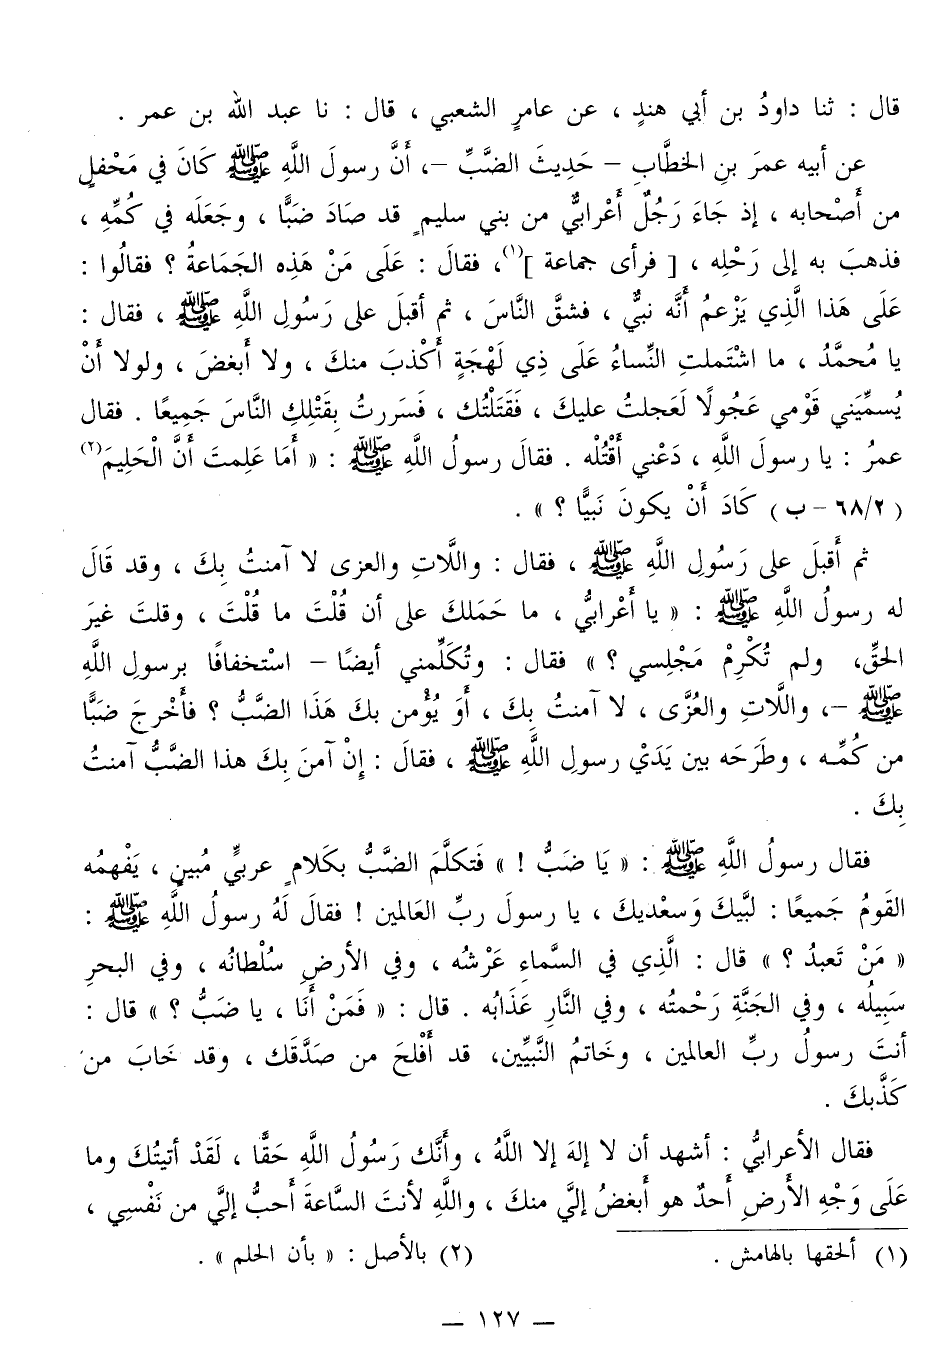 قال : ثنا داودُ بن أبي هندٍ ، عن عامرٍ الشعبي ، قال : نا عبد الله بن عمر .
عن أبيه عمرَ بنِ الخطَّابِ – حَدِيثَ الضَّبِّ –، أَنَّ رسولَ اللَّهِ ﷺ كَانَ في مَحْفلٍ
من أَصْحابه ، إذ جَاءَ رَجُلٌ أَعْرابيٌّ من بني سليمٍ قد صَادَ ضَبًّا ، وجَعَلَه في كُمِّه ،
فذهبَ به إلى رَحْلِه ، [ فرأى جماعة ](١)، فقالَ : عَلَى مَنْ هَذِه الجَماعةُ ؟ فقالُوا :
عَلَى هَذا الَّذِي يَزْعمُ أَنَّه نبيٌّ ، فشقَّ النَّاسَ ، ثم أقبلَ على رَسُولِ اللَّهِ ﷺ ، فقال :
يا مُحمَّدُ ، ما اشْتَملتِ النِّساءُ عَلَى ذِي لَهْجَةٍ أَكْذبَ منكَ ، ولا أَبغضَ ، ولولا أَنْ
يُسمِّيَني قَوْمي عَجُولًا لَعجلتُ عليكَ ، فَقَتَلْتُك ، فَسَررتُ بِقَتْلِكِ النَّاسَ جَمِيعًا . فقال
عمرُ : يا رسولَ اللَّهِ ، دَعْني أَقْتُلْه . فقالَ رسولُ اللَّهِ ﷺ : « أَمَا عَلِمتَ أَنَّ الْحَلِيمَ(٢)
( ٦٨/٢ – ب ) كَادَ أَنْ يكونَ نَبيًّا ؟ » .
ثم أَقبلَ على رَسُولِ اللَّهِ ﷺ ، فقال : واللَّاتِ والعزى لا آمنتُ بِكَ ، وقد قَالَ
له رسولُ اللَّهِ ﷺ : « يا أَعْرابيُّ ، ما حَمَلكَ على أن قُلْتَ ما قُلْتَ ، وقلتَ غيرَ
الحقِّ، ولم تُكْرِمْ مَجْلِسي ؟ » فقال : وتُكَلِّمني أيضًا – اسْتخفافًا برسولِ اللَّهِ
ﷺ –، واللَّاتِ والعُزَّى ، لا آمنتُ بِكَ ، أَوَ يُؤْمن بكَ هَذَا الضَّبُّ ؟ فأَخْرجَ ضَبًّا
من كُمِّه ، وطَرَحَه بين يَدَيْ رسولِ اللَّهِ ﷺ ، فقالَ : إِنْ آمنَ بِكَ هذا الضَّبُّ آمنتُ
بِكَ .
فقال رسولُ اللَّهِ ﷺ : « يَا ضَبُّ ! » فَتكلَّمَ الضَّبُّ بكَلامٍ عربيٍّ مُبينٍ ، يَفْهمُه
القَومُ جَميعًا : لبَّيكَ وَسعْديكَ ، يا رسولَ ربِّ العَالمين ! فقالَ لَهُ رسولُ اللَّهِ ﷺ :
« مَنْ تَعبدُ ؟ » قال : الَّذِي في السَّماءِ عَرْشُه ، وفي الأرضِ سُلْطانُه ، وفي البحرِ
سَبِيلُه ، وفي الجَنَّةِ رَحْمتُه ، وفي النَّارِ عَذَابُه . قال : « فَمَنْ أَنَا ، يا ضَبُّ ؟ » قال :
أنتَ رسولُ ربِّ العالمين ، وخَاتمُ النَّبيِّين، قد أَفْلحَ من صَدَّقَك ، وقد خَابَ من
كَذَّبكَ .
فقال الأعرابيُّ : أشهد أن لا إلهَ إلا اللَّهُ ، وأَنَّك رَسُولُ اللَّهِ حَقًّا ، لَقَدْ أتيتُكَ وما
عَلَى وَجْهِ الأَرضِ أَحدٌ هو أَبغضُ إليَّ منكَ ، واللَّهِ لأنتَ السَّاعةَ أَحبُّ إليَّ من نَفْسِي ،
(١) ألحقها بالهامش . (٢) بالأصل : « بأن الحلم » .
— ١٢٧ —